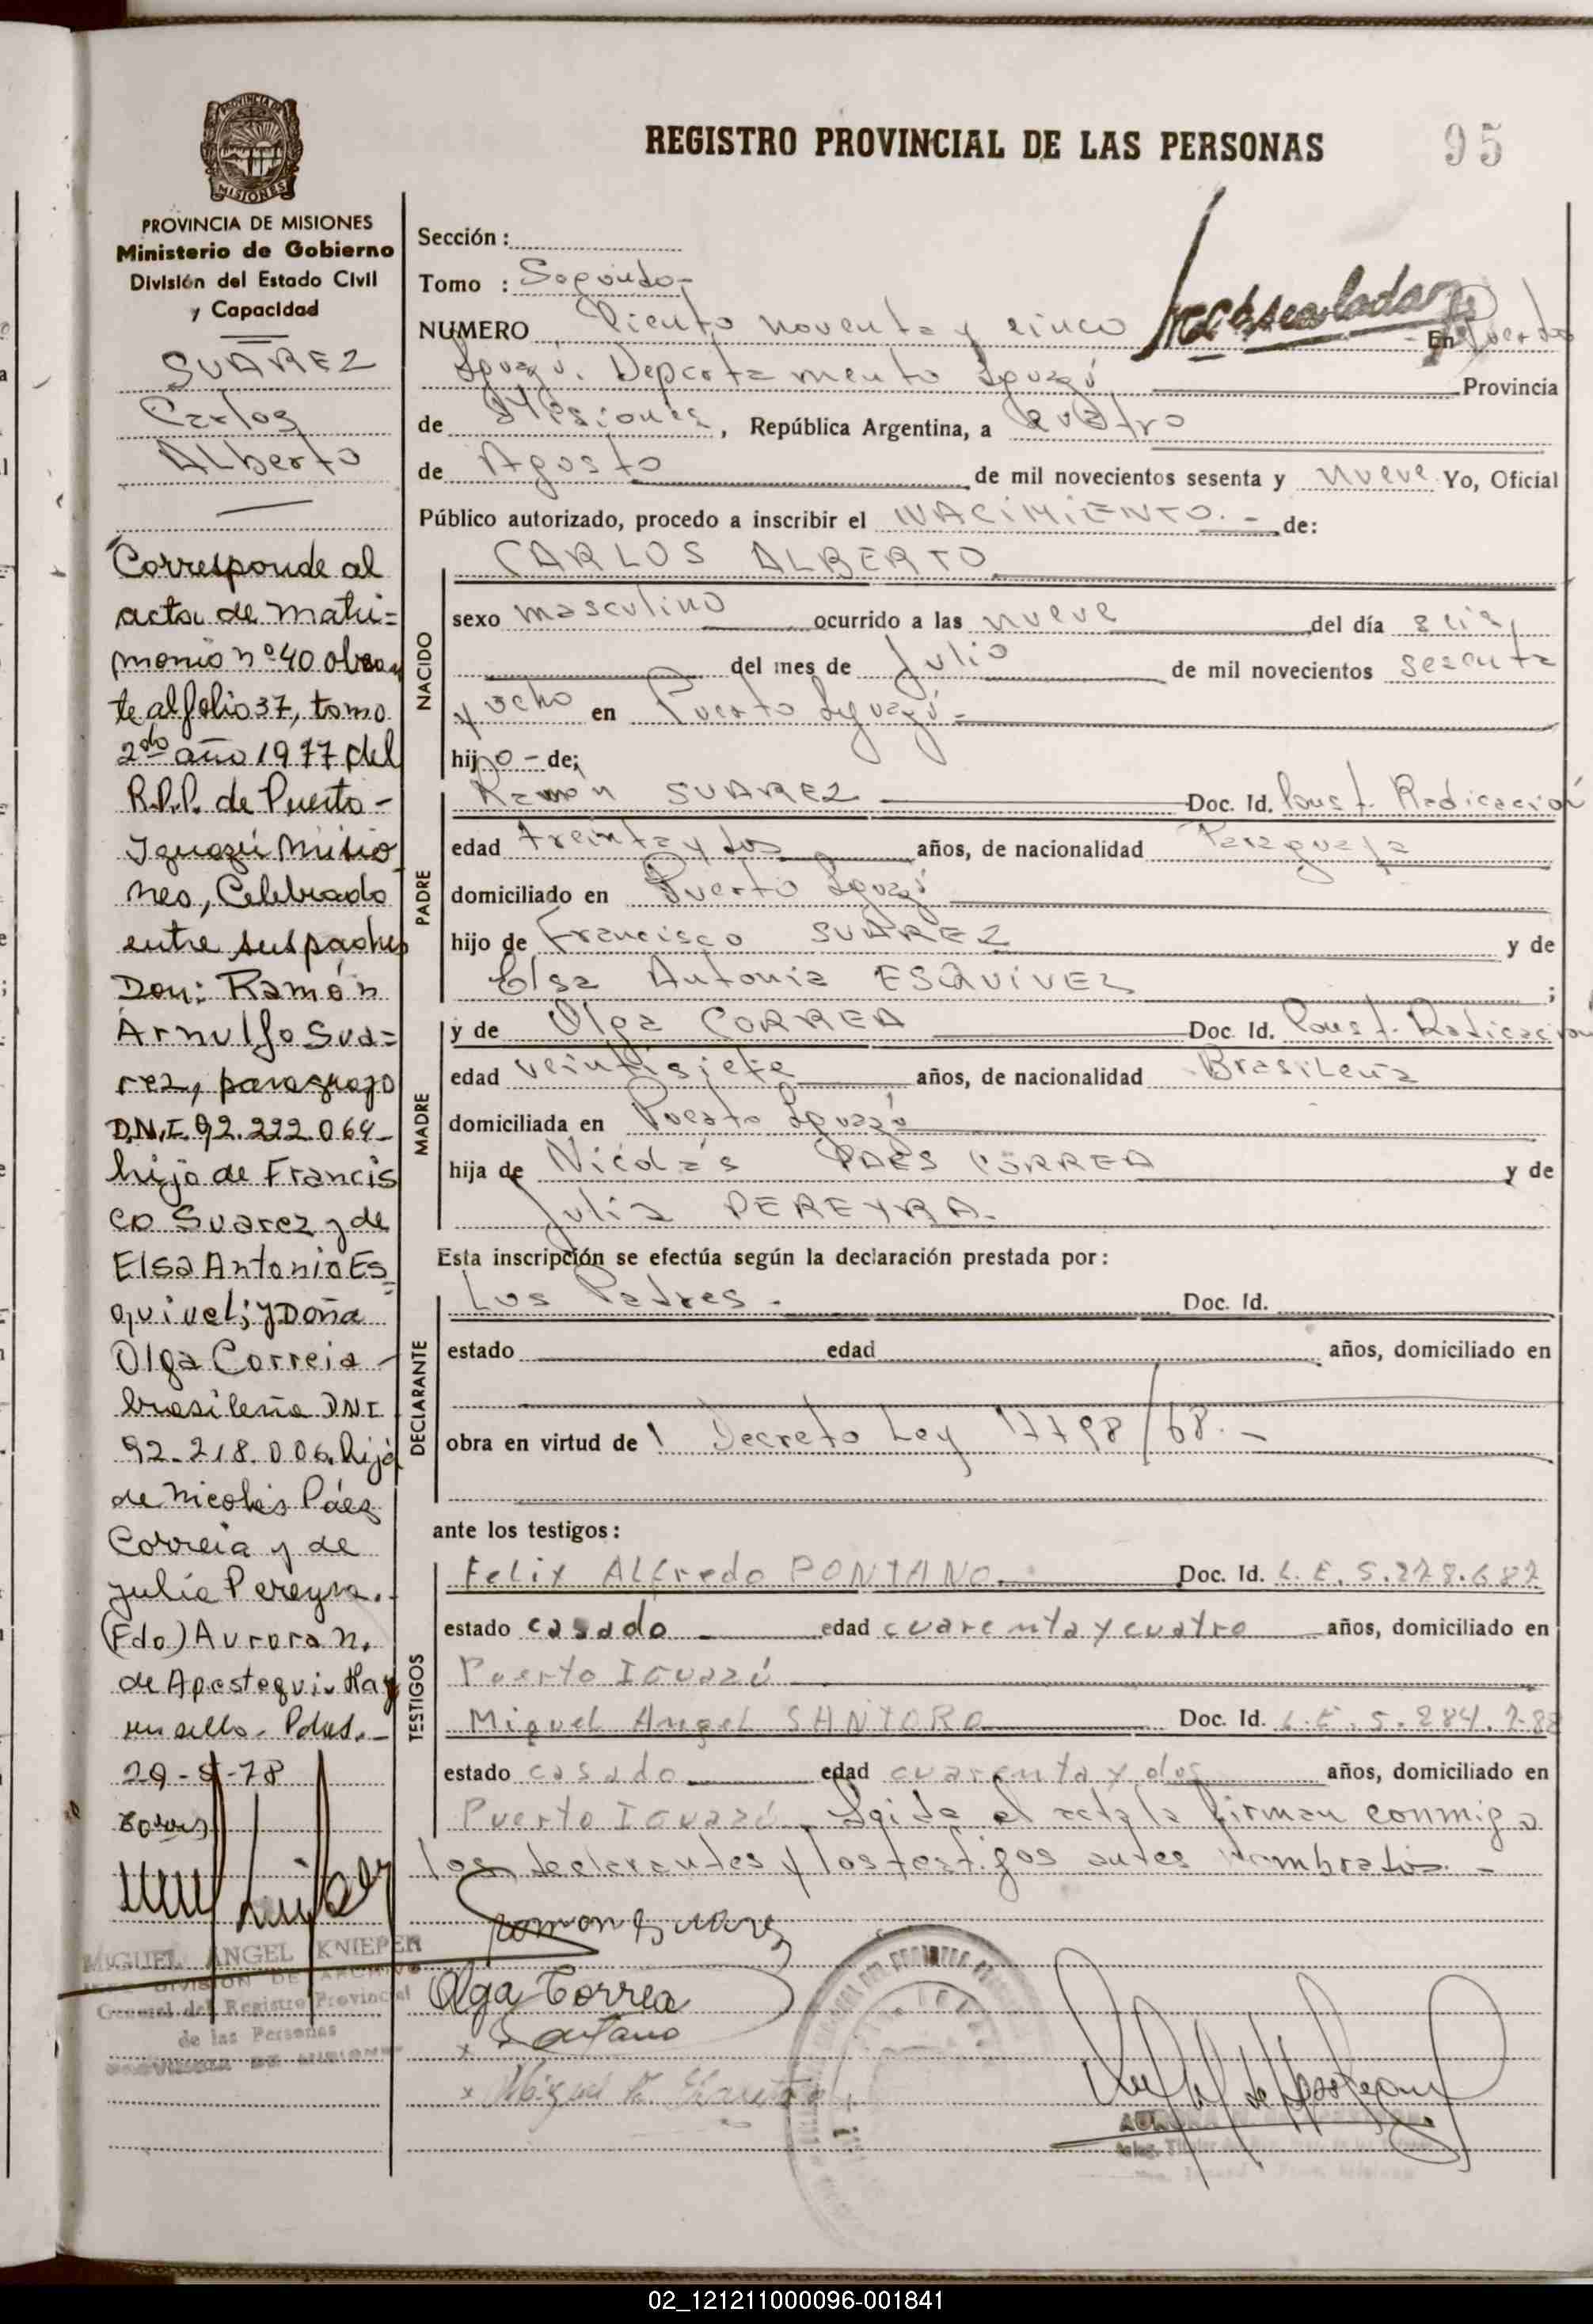 REGISTRO PROVINCIAL DE LAS PERSONAS
95
PROVINCIA DE MISIONES
PROVINCIA DE MISIONES
Ministerio de Gobierno
División del Estado Civil
y Capacidad
SUÁREZ
Carlos
Alberto
Corresponde al
acta de matri=
monio nº 40 obran
te al folio 37, tomo
2do año 1977 del
R.P.P. de Puerto-
Iguazú Misio
nes, Celebrado
entre sus padres
Don: Ramón
Arnulfo Sua=
rez, paraguayo
D.N.I. 92.222.064-
hijo de Francis
co Suarez y de
Elsa Antonia Es
quivel; y Doña
Olga Correia -
brasileña DNI
92.218.006. hija
de Nicolás Páez
Correia y de
Julia Pereyra.
(Fdo) Aurora N.
de Apestegui. Hay
un sello. Pdas.-
MIGUEL ANGEL KNIEPER
JEFE DIVISION DE ARCHIVO
General del Registro Provincial
de las Personas
PROVINCIA DE MISIONES
Sección :
Tomo : Segundo-
NUMERO Ciento noventa y cinco En Puerto
Iguazú. Departamento Iguazú Provincia
de Misiones, República Argentina, a cuatro
de Agosto de mil novecientos sesenta y nueve Yo, Oficial
Público autorizado, procedo a inscribir el NACIMIENTO.- de:
NACIDO
CARLOS ALBERTO
sexo masculino ocurrido a las nueve del día
del mes de Julio de mil novecientos sesenta
y ocho en Puerto Iguazú-
hijo - de;
PADRE
Ramón SUAREZ Doc. Id. Const. Radicación
edad treinta y dos años, de nacionalidad Paraguaya
domiciliado en Puerto Iguazú
hijo de Francisco SUÁREZ y de
Elsa Antonia ESQUIVEL ;
MADRE
y de Olga CORREA Doc. Id. Const. Radicación
edad veintisiete años, de nacionalidad Brasileña
domiciliada en Puerto Iguazú
hija de Nicolás PAES CORREA y de
Julia PEREYRA.
Esta inscripción se efectúa según la declaración prestada por :
DECLARANTE
Los Padres - Doc. Id.
estado edad años, domiciliado en
obra en virtud de l Decreto Ley 17798/68.-
ante los testigos :
TESTIGOS
Felix Alfredo PONTANO Doc. Id. L.E. 5.278.687
estado casado edad cuarenta y cuatro años, domiciliado en
Puerto Iguazú
Miguel Angel SANTORO Doc. Id. L.E. 5.284.788
estado casado edad cuarenta y dos años, domiciliado en
Puerto Iguazú. Leída el acta la firman conmigo
los declarantes y los testigos antes nombrados.-
Ramon Suarez
Olga Correa
02_121211000096-001841